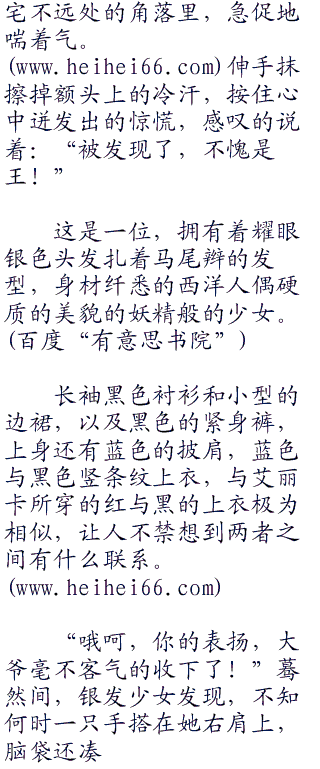 宅不远处的角落里，急促地
喘着气。
(www.heihei66.com)伸手抹
擦掉额头上的冷汗，按住心
中迸发出的惊慌，感叹的说
着：“被发现了，不愧是
王！”
这是一位，拥有着耀眼
银色头发扎着马尾辫的发
型，身材纤悉的西洋人偶硬
质的美貌的妖精般的少女。
(百度“有意思书院”)
长袖黑色衬衫和小型的
边裙，以及黑色的紧身裤，
上身还有蓝色的披肩，蓝色
与黑色竖条纹上衣，与艾丽
卡所穿的红与黑的上衣极为
相似，让人不禁想到两者之
间有什么联系。
(www.heihei66.com)
“哦呵，你的表扬，大
爷毫不客气的收下了！”蓦
然间，银发少女发现，不知
何时一只手搭在她右肩上，
脑袋还凑